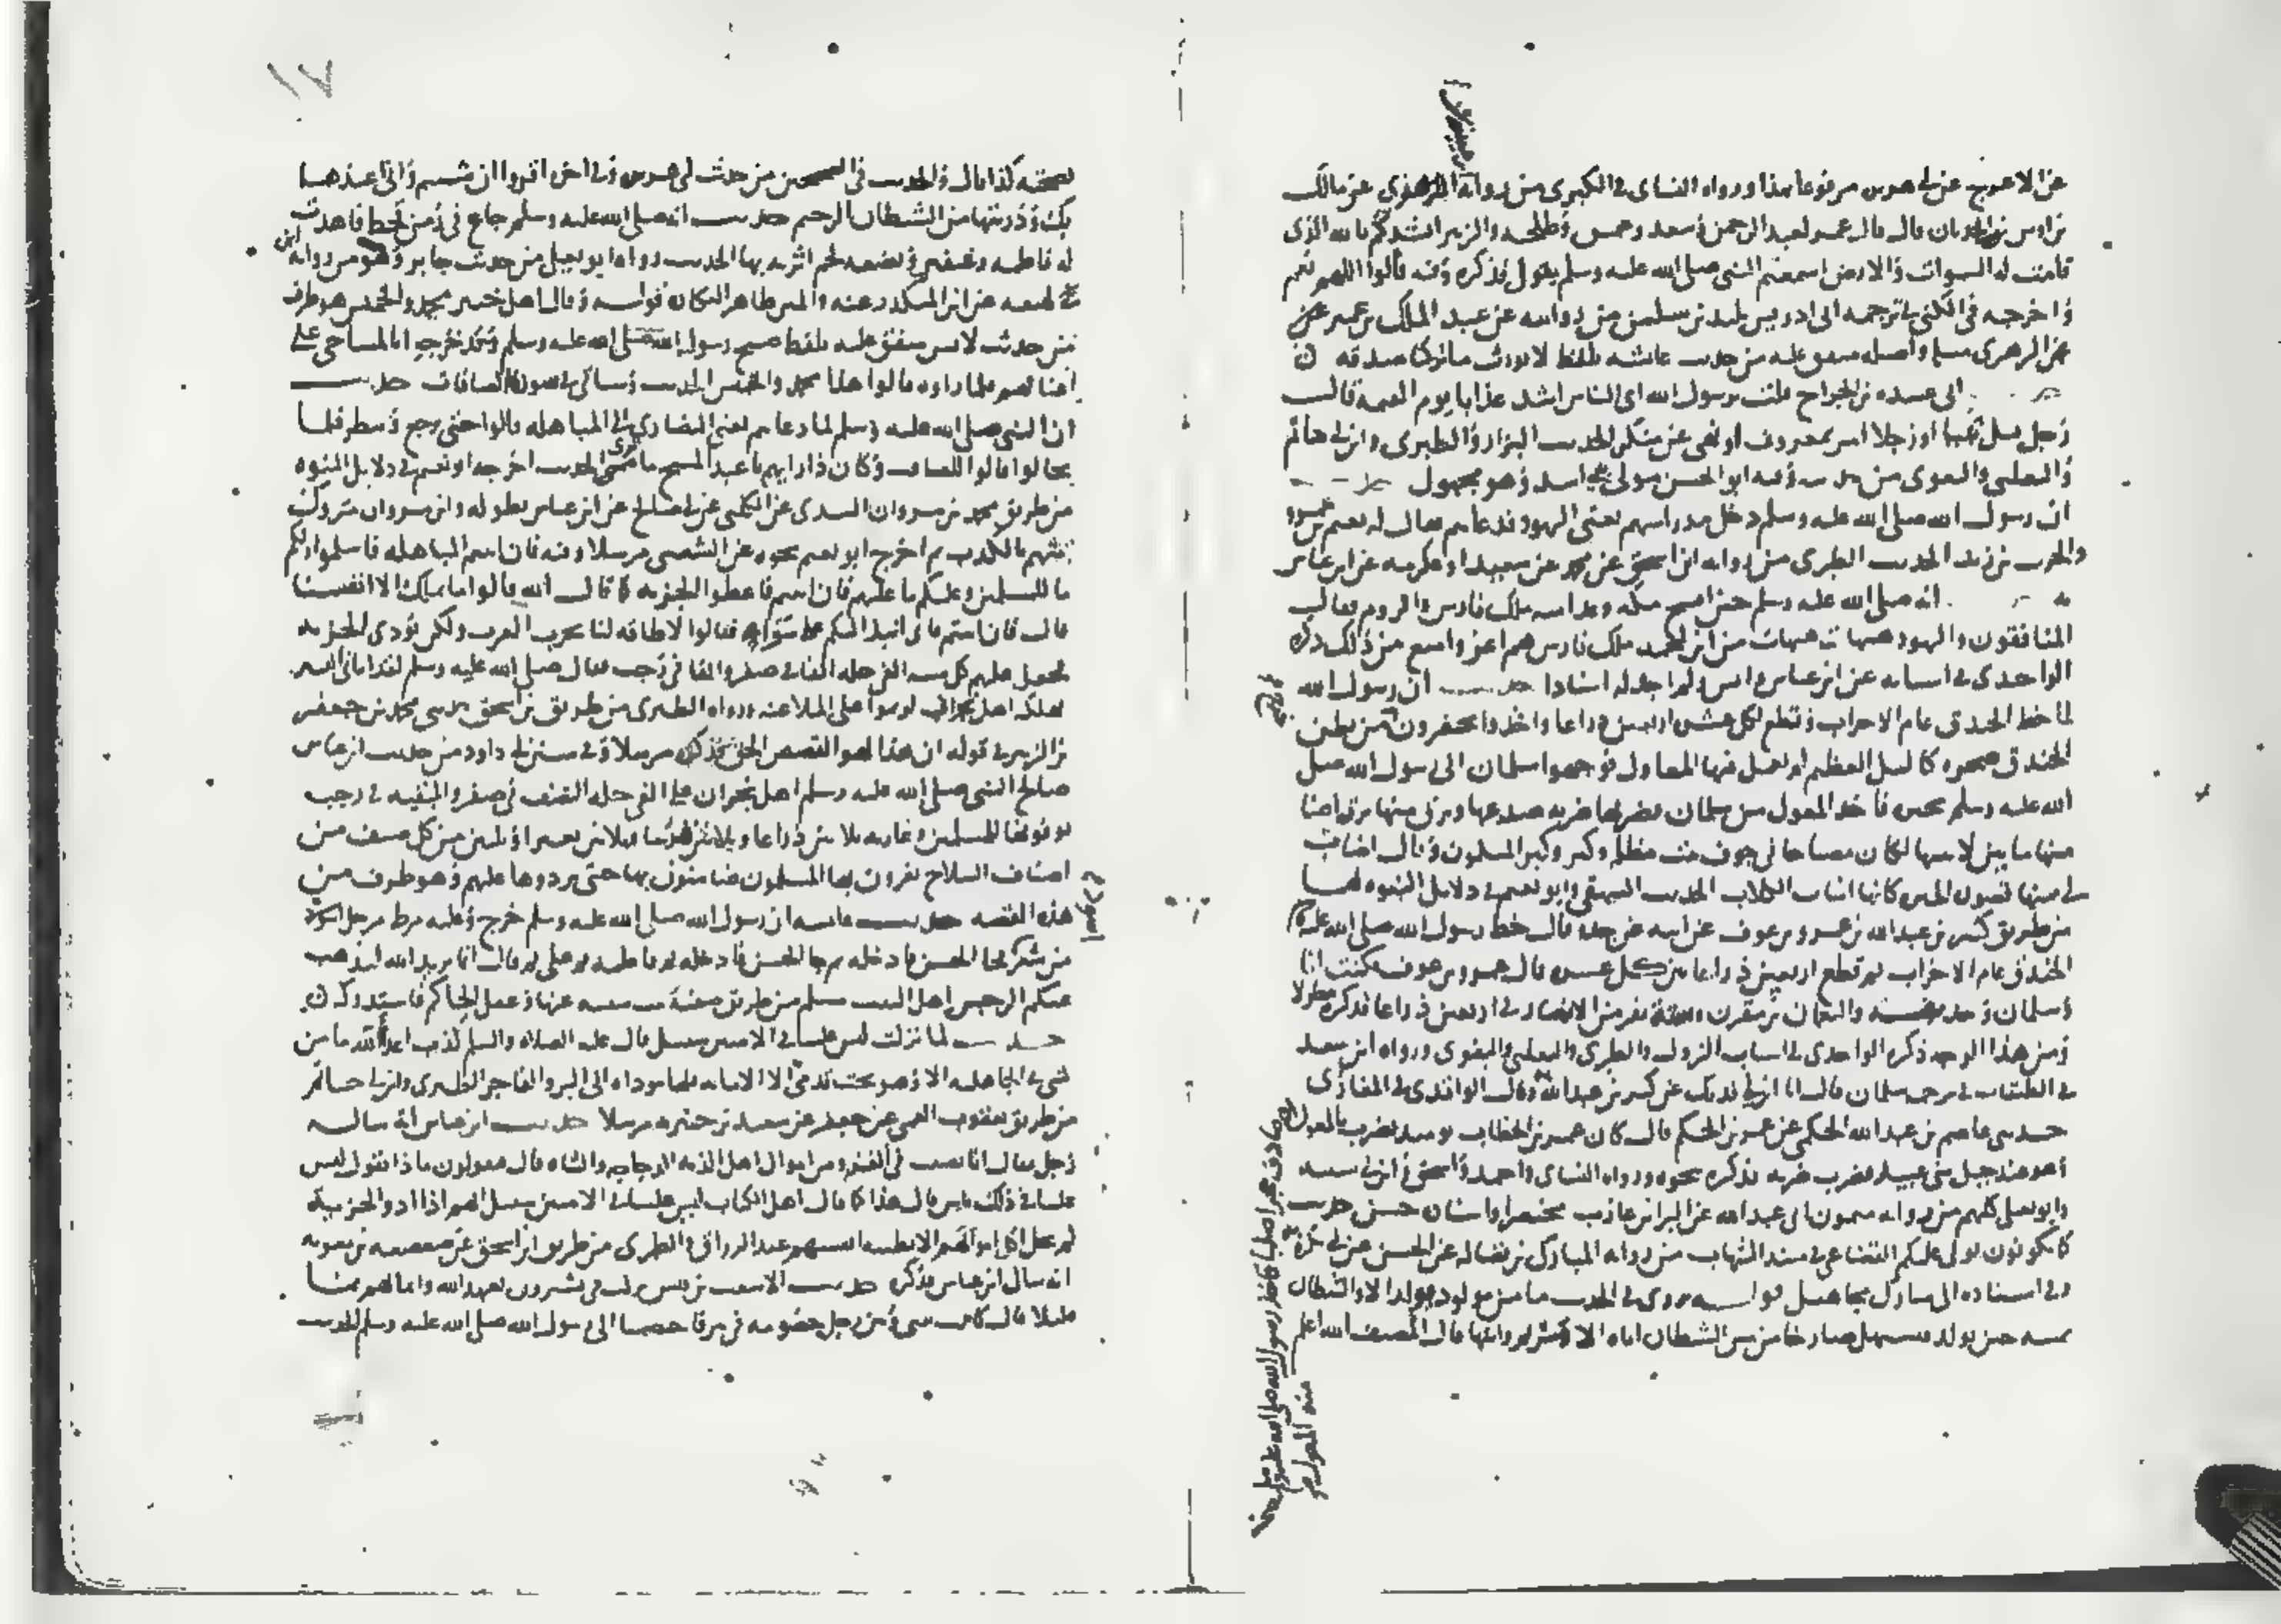 عن الاعرج عن ابي هريرة مرفوعا بهذا ورواه النساي في الكبرى من رواية الزهري عن مالك
بن اوس بن الحدثان قال قال عمر لعبد الرحمن وسعد وطلحة والزبير انشدكم بالله الذي
قامت له السموات والارض اسمعتم النبي صلى الله عليه وسلم يقول فذكره وفيه قالوا اللهم نعم
واخرجه في الكنى في ترجمة ابي ادريس تليد بن سليمن من روايته عن عبد الملك بن عمير عن
الزهري واصله متفق عليه من حديث عائشة بلفظ لا نورث ما تركنا صدقة
ابي عبيدة بن الجراح قلت يرسول الله اي الناس اشد عذابا يوم القيمة قال
رجل قتل نبيا او رجلا امر بمعروف او نهى عن منكر الحديث البزار والطبري وابن ابي حاتم
والثعلبي والبغوي من وفيه ابو الحسن مولى بني اسد وهو مجهول
ان رسول الله صلى الله عليه وسلم دخل مدراسهم يعني اليهود فدعاهم فقال له نعيم بن عمرو
والحرث بن زيد الحديث الطبري من رواية ابن اسحق عن محمد عن سعيد او عكرمة عن ابن عباس
انه صلى الله عليه وسلم حين افتتح مكة وعد امته ملك فارس والروم فقال
المنافقون واليهود هيهات هيهات من اين لمحمد ملك فارس هم اعز وامنع من ذلك ذكره
الواحدي في اسبابه عن ابن عباس وانس ولم اجد له اسنادا حديث ان رسول الله
لما خط الخندق عام الاحزاب وقطع لكل عشرة اربعين ذراعا واخذوا يحفرون من بطن
الخندق صخرة كالتل العظيم لم تعمل فيها المعاول فوجهوا سلمان الى رسول الله صلى
الله عليه وسلم يخبره فاخذ المعول من سلمان فضربها ضربة صدعها وبرق منها برق اضا
منها ما بين لابتيها لكان مصباحا في جوف بيت مظلم وكبر وكبر المسلمون وقال اضات
لي منها قصور الحيرة كانها انياب الكلاب الحديث البيهقي وابو نعيم في دلايل النبوة لهما
من طريق كثير بن عبد الله بن عمرو بن عوف عن ابيه عن جده قال خط رسول الله صلى الله عليه
الخندق عام الاحزاب ثم قطع اربعين ذراعا بين كل عشرة قال عمرو بن عوف فكنت انا
وسلمان وحذيفة والنعمان بن مقرن وستة نفر من الانصار في اربعين ذراعا فذكره مطولا
ومن هذا الوجه ذكره الواحدي في اسباب النزول والطبري والثعلبي والبغوي ورواه ابن سعد
في الطبقات في ترجمة سلمان قال انا ابن ابي فديك عن كثير بن عبد الله وقال الواقدي في المغازي
حدثني عاصم بن عبد الله الحكمي عن عمر بن الحكم قال كان عمر بن الخطاب يومئذ يضرب بالمعول
وهو عند جبل بني عبيد فضرب ضربة فذكره نحوه ورواه النساي واحمد واسحق وابن ابي شيبة
وابو يعلى كلهم من رواية ميمون ابي عبد الله عن البرا بن عازب مختصرا واسناده حسن حديث
كما تكونون يولى عليكم القضاعي في مسند الشهاب من رواية المبارك بن فضالة عن الحسن عن ابي بكرة
وفي اسناده الى مبارك مجاهيل قوله يروى في الحديث ما من مولود يولد الا والشيطان
يمسه حين يولد فيستهل صارخا من مس الشيطان اياه الا مريم وابنها قال المصنف الله اعلم
بصحته كذا قال والحديث في الصحيحين من حديث ابي هريرة وفي اخره اقروا ان شيتم واني اعيذها
بك وذريتها من الشيطان الرجيم حديث انه صلى الله عليه وسلم جاع في زمن قحط فاهدت
له فاطمة رغيفين وبضعة لحم اثرته بها الحديث رواه ابو يعلى من حديث جابر وهو من رواية ابن
لهيعة عن ابن المنكدر عنه والمتن ظاهر النكارة قوله وقال اهل خيبر محمد والخميس هو طرف
من حديث لانس متفق عليه بلفظ صبح رسول الله صلى الله عليه وسلم وقد خرجوا بالمساحي على
اعناقهم فلما راوه قالوا هذا محمد والخميس الحديث وسياتي في سورة الصافات حديث
ان النبي صلى الله عليه وسلم لما دعاهم يعني النصارى الى المباهلة قالوا حتى نرجع وننظر فلما
تخالوا قالوا للعاقب وكان ذا رايهم يا عبد المسيح ما ترى الحديث اخرجه ابو نعيم في دلايل النبوة
من طريق محمد بن مروان السدي عن الكلبي عن ابي صالح عن ابن عباس بطوله وابن مروان متروك
متهم بالكذب ثم اخرج ابو نعيم نحوه عن الشعبي مرسلا وفيه فان ابيتم المباهلة فاسلموا ولكم
ما للمسلمين وعليكم ما عليهم فان ابيتم فاعطوا الجزية كما قال الله قالوا ما نملك الا انفسنا
قال فان ابيتم فاني انبذ اليكم على سواء فقالوا لا طاقة لنا بحرب العرب ولكن نودي الجزية
فجعل عليهم كل سنة الفي حلة الفا في صفر والفا في رجب فقال صلى الله عليه وسلم لقد اتاني البشير
بهلكة اهل نجران لو تموا على الملاعنة ورواه الطبري من طريق بن اسحق حدثني محمد بن جعفر
بن الزبير في قوله ان هذا لهو القصص الحق فذكره مرسلا وفي سنن ابي داود من حديث ابن عباس
صالح النبي صلى الله عليه وسلم اهل نجران على الفي حلة النصف في صفر والبقية في رجب
يودونها للمسلمين وعارية ثلاثين ذراعا وثلاثين فرسا وثلاثين بعيرا وثلثين من كل صنف من
اصناف السلاح يغزون بها المسلمون ضامنون لها حتى يردوها عليهم وهو طرف من
هذه القصة حديث عايشة ان رسول الله صلى الله عليه وسلم خرج وعليه مرط مرجل اسود
من شعر فجا الحسن فادخله ثم جا الحسين فادخله ثم فاطمة ثم علي ثم قال انما يريد الله ليذهب
عنكم الرجس اهل البيت مسلم من طريق صفية بنت شيبة عنها وغفل الحاكم فاستدركه
حديث لما نزلت ليس علينا في الاميين سبيل قال عليه الصلاة والسلم كذب اعداء الله ما من
شي في الجاهلية الا وهو تحت قدمي الا الامانة فانها موداة الى البر والفاجر الطبري وابن ابي حاتم
من طريق يعقوب القمي عن جعفر عن سعيد بن جبير مرسلا حديث ابن عباس انه ساله
رجل فقال انا نصيب في الغزو من اموال اهل الذمة الدجاجة والشاة قال فتقولون ماذا نقول ليس
علينا في ذلك باس قال هذا كما قال اهل الكتاب ليس علينا في الاميين سبيل انهم اذا ادوا الجزية
لم تحل لكم اموالهم الا بطيب انفسهم عبد الرزاق والطبري من طريق ابن اسحق عن صعصعة بن معوية
انه سال ابن عباس فذكره حديث الاشعث بن قيس نزلت في يشترون بعهد الله وايمانهم ثمنا
قليلا قال كانت بيني وبين رجل خصومة في بير فاختصمنا الى رسول الله صلى الله عليه وسلم الحديث